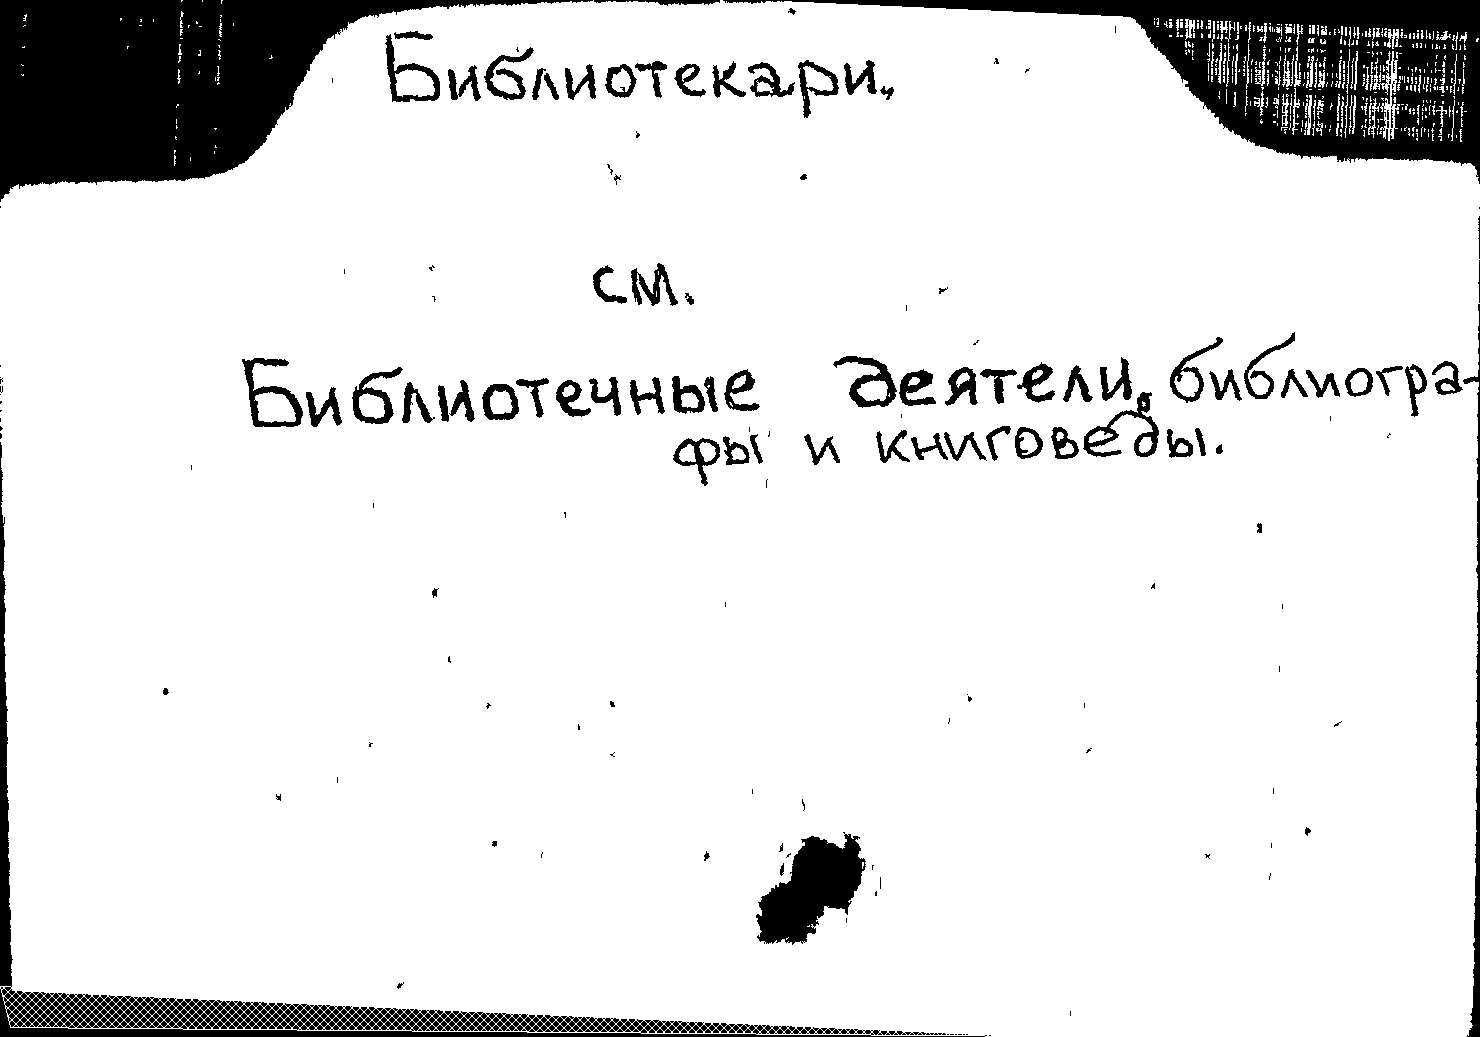 Библиотекари.
см.
Библиотечные деятели, библиогра-
фы и книговеды.